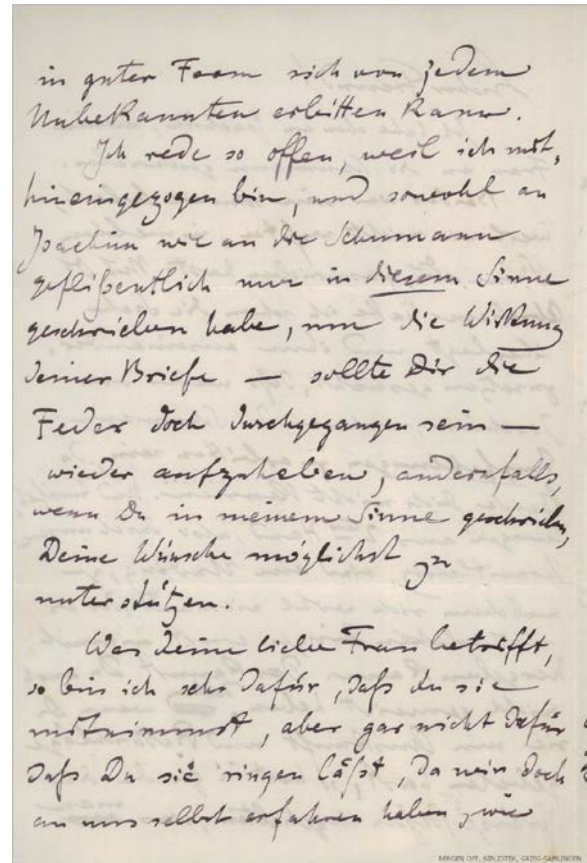 in guter Form sich von jedem
Unbekannten erbitten kann.
Ich rede so offen, weil ich mit-
hineingezogen bin, und sowohl an
Joachim wie an die Schumann
geflißentlich nur in diesem Sinne
geschrieben habe, um die Wirkung
Deiner Briefe — sollte Dir die
Feder doch durchgegangen sein —
wieder aufzuheben, andernfalls,
wenn Du in meinem Sinne geschrieben,
Deine Wünsche möglichst zu
unterstützen.
Was Deine liebe Frau betrifft,
so bin ich sehr dafür, daß du sie
mitnimmst, aber gar nicht dafür
daß Du sie singen läßt, da wir doch
an uns selbst erfahren haben, wie
BERGEN OFF. BIBLIOTEK, GRIEG-SAMLINGEN